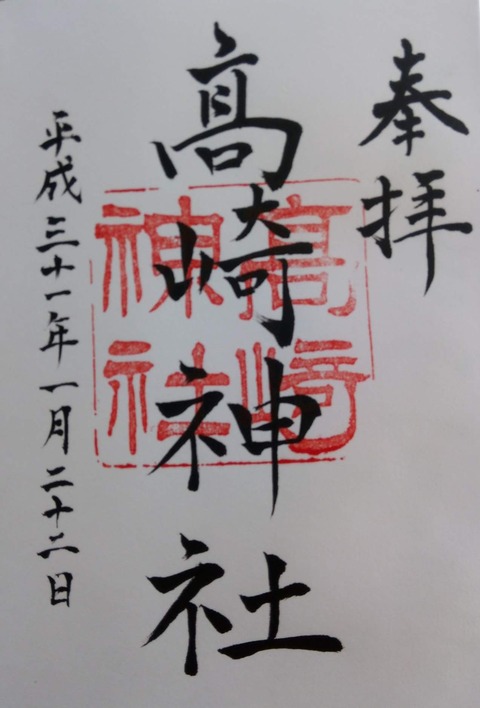 奉拝
髙崎神社
髙崎
神社
平成三十一年一月二十二日